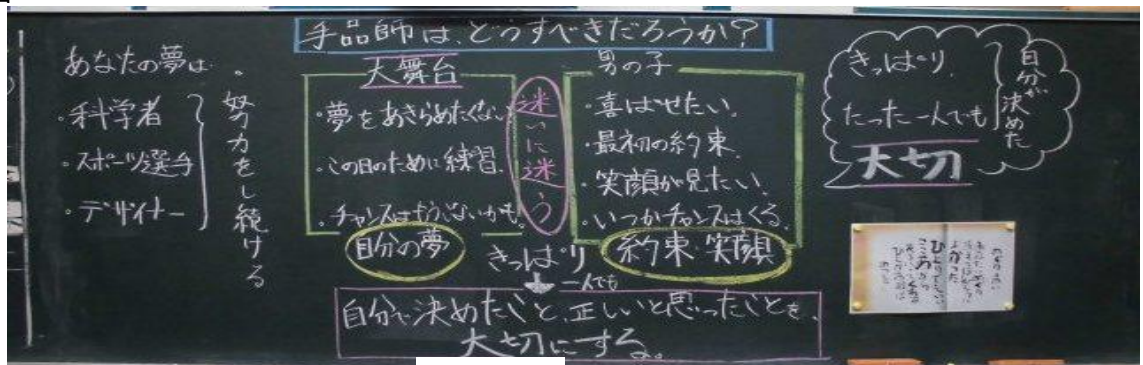 手品師は、どうすべきだろうか?
あなたの夢は
・科学者
・スポーツ選手
・デザイナー
・努力をし続ける
大舞台
・夢をあきらめたくない
・この日のために練習
・チャンスはもうこないかも
自分の夢
迷いに迷う
男の子
・喜ばせたい。
・最初の約束
・笑顔が見たい。
・いつかチャンスはくる。
約束・笑顔
きっぱり
一人でも
自分で決めたこと、正しいと思ったことを、
大切にする。
きっぱり
たった一人でも
自分が決めた
大切